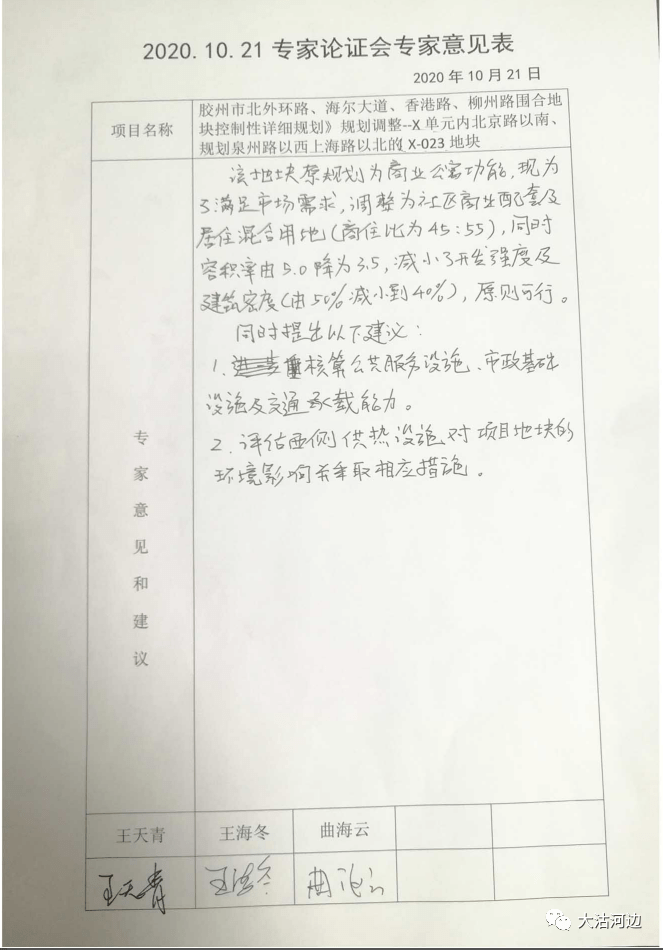 2020.10.21 专家论证会专家意见表
2020 年 10 月 21 日
项目名称
胶州市北外环路、海尔大道、香港路、柳州路围合地
块控制性详细规划》规划调整--X 单元内北京路以南、
规划泉州路以西上海路以北的 X-023 地块
专家意见和建议
该地块原规划为商业公寓功能,现为
了满足市场需求,调整为社区商业配套及
居住混合用地(商住比为45:55),同时
容积率由5.0降为3.5,减小了开发强度及
建筑密度(由50%减小到40%),原则可行。
同时提出以下建议:
1.核算公共服务设施、市政基础
设施及交通承载能力。
2.评估西侧供热设施对项目地块的
环境影响并采取相应措施。
王天青 王海冬 曲海云
王天青 王海冬 曲海云
大沽河边